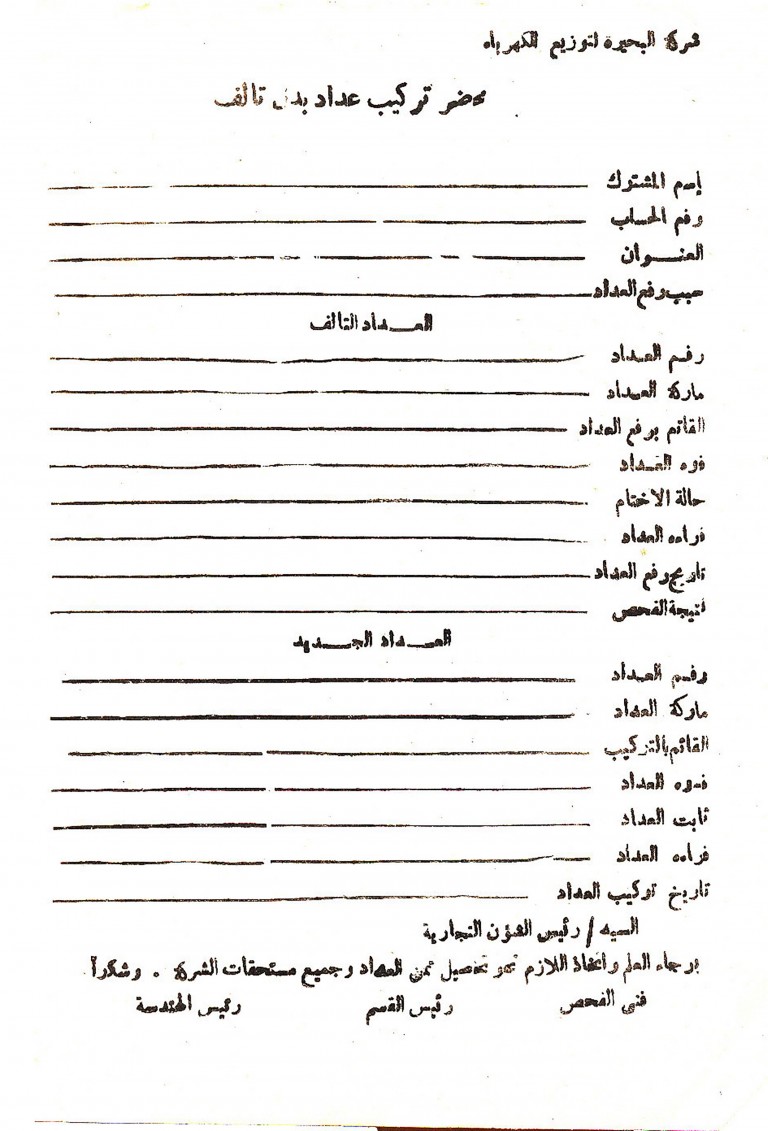 شركة البحيرة لتوزيع الكهرباء
محضر تركيب عداد بدل تالف
إسم المشترك
رقم الحساب
العنـــوان
سبب رفع العداد
العــداد التالف
رقم العداد
ماركة العداد
القائم برفع العداد
قوة العداد
حالة الاختام
قراءة العداد
تاريخ رفع العداد
نتيجة الفحص
العــداد الجــديد
رقم العداد
ماركة العداد
القائم بالتركيب
قوة العداد
ثابت العداد
قراءة العداد
تاريخ تركيب العداد
السيد / رئيس الشئون التجارية
برجاء العلم واتخاذ اللازم نحو تحصيل ثمن العداد وجميع مستحقات الشركة . وشكراً
فنى الفحص رئيس القسم رئيس الهندسة